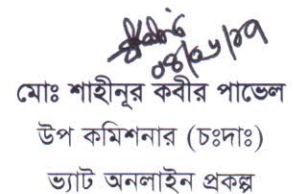 ০৪/০৬/১৭
মোঃ শাহীনূর কবীর পাভেল
উপ কমিশনার (চঃদাঃ)
ভ্যাট অনলাইন প্রকল্প